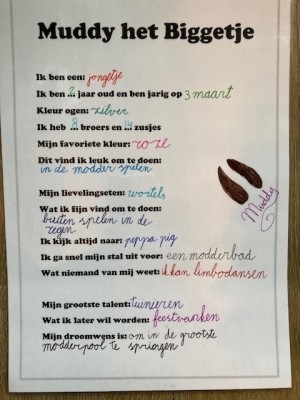 Muddy het Biggetje
Ik ben een: jongetje
Ik ben 2 jaar oud en ben jarig op 3 maart
Kleur ogen: zilver
Ik heb 8 broers en 14 zusjes
Mijn favoriete kleur: roze
Dit vind ik leuk om te doen:
in de modder spelen
Mijn lievelingseten: wortels
Wat ik fijn vind om te doen:
buiten spelen in de
regen
Ik kijk altijd naar: peppa pig
Ik ga snel mijn stal uit voor: een modderbad
Wat niemand van mij weet: ik kan limbodansen
Mijn grootste talent: tuinieren
Wat ik later wil worden: feestvarken
Mijn droomwens is: om in de grootste
modderpool te springen
Muddy